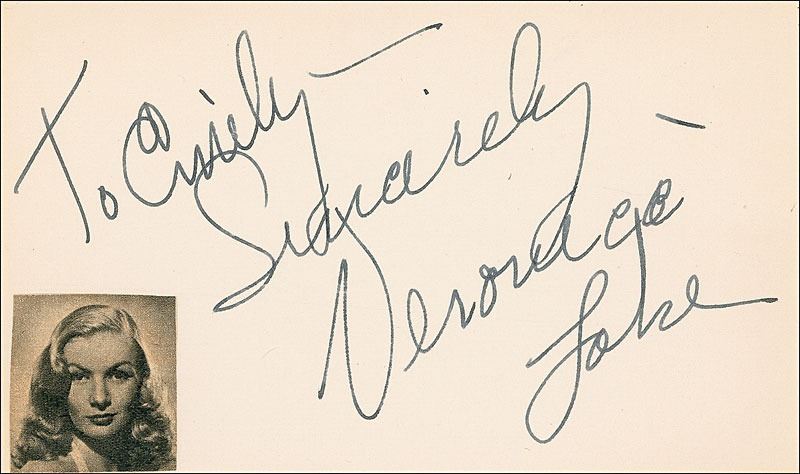 To Emily —
Sincerely —
Veronica
Lake